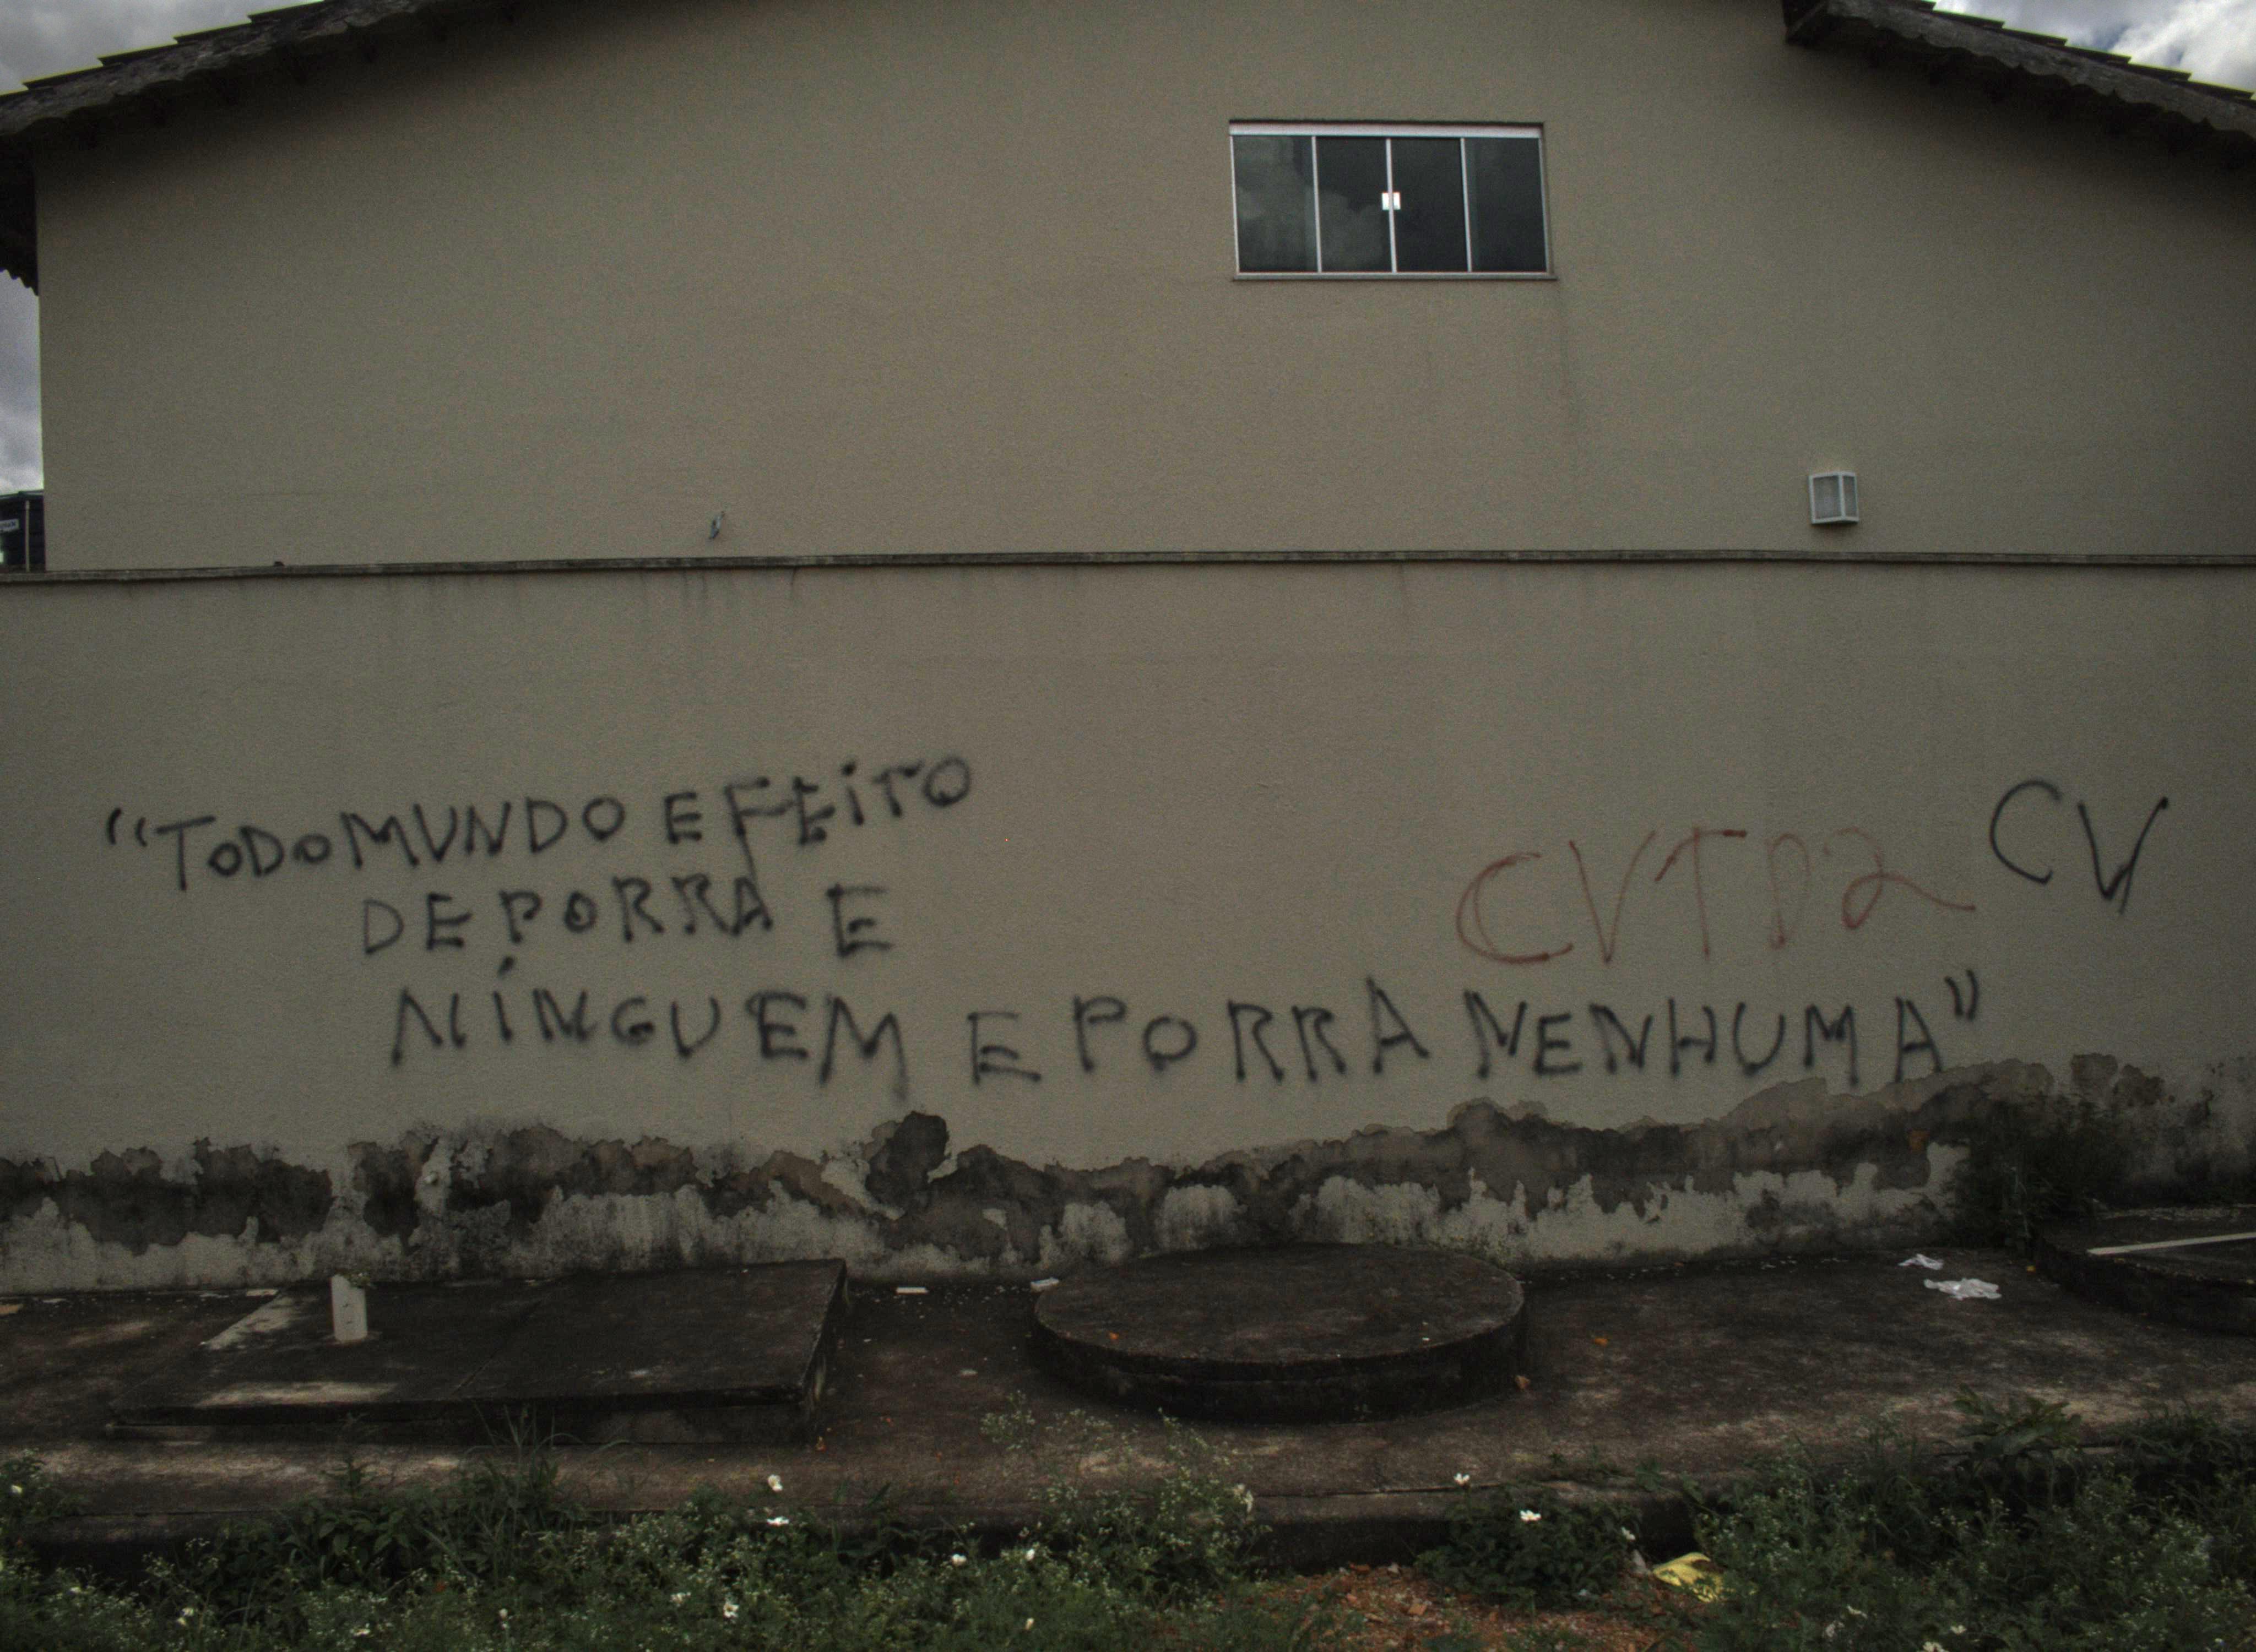 "TODO MUNDO E FEITO
DE PORRA E
NÍNGUEM E PORRA NENHUMA"
CVTD2
CV